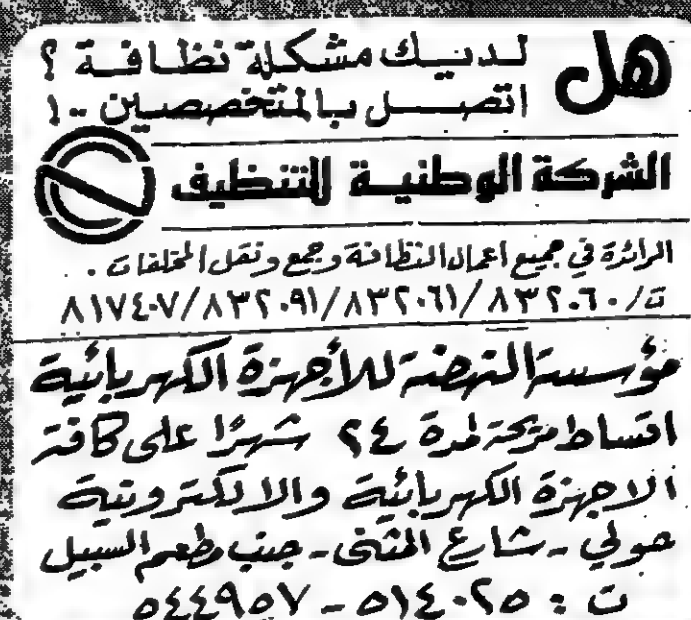 هل لديك مشكلة نظافة ؟
اتصل بالمتخصصين ..!
الشركة الوطنية للتنظيف
الرائدة في جميع اعمال النظافة وجمع ونقل المخلفات .
ت/٨٣٢٠٦٠/٨٣٢٠٦١/٨٣٢٠٩١/٨١٧٤٠٧
مؤسسة النهضة للأجهزة الكهربائية
اقساط مريحة لمدة ٢٤ شهرًا على كافة
الاجهزة الكهربائية والالكترونية
حولي - شارع المثنى - جنب مطعم السبيل
ت : ٥١٤٠٢٥ - ٥٤٤٩٥٧